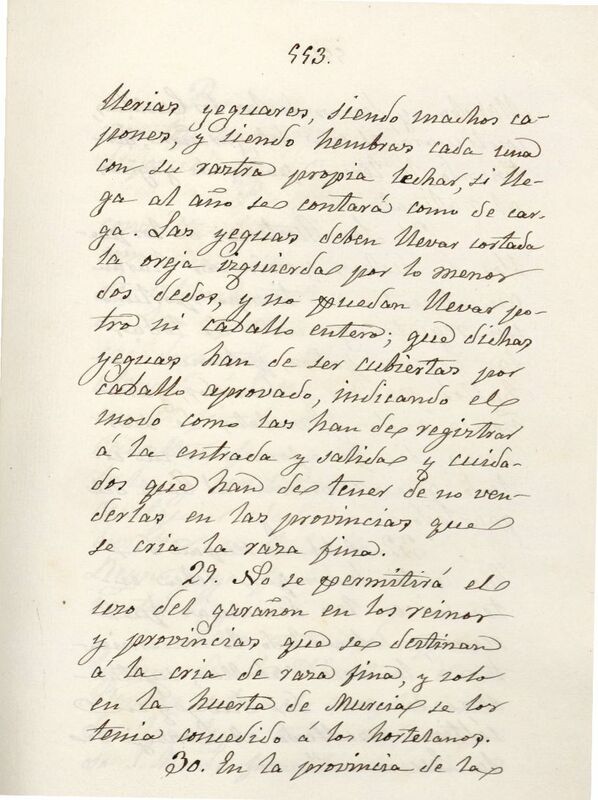 553.
llerias yeguares, siendo machos ca-
pones, y siendo hembras cada una
con su rastra propia lechar, si lle-
ga al año se contará como de car-
ga. Las yeguas deben llevar cortada
la oreja izquierda por lo menor
dos dedos, y no puedan llevar po-
tro ni caballo entero; que dichas
yeguas han de ser cubiertas por
caballo aprovado, indicando el
modo como las han de registrar
á la entrada y salida y cuida-
dos que han de tener de no ven-
derlas en las provincias que
se cria la raza fina.
29. No se permitirá el
uzo del garañon en los reinos
y provincias que se destinan
á la cria de raza fina, y solo
en la huerta de Murcia se los
tenia concedido á los hortelanos.
30. En la provincia de la